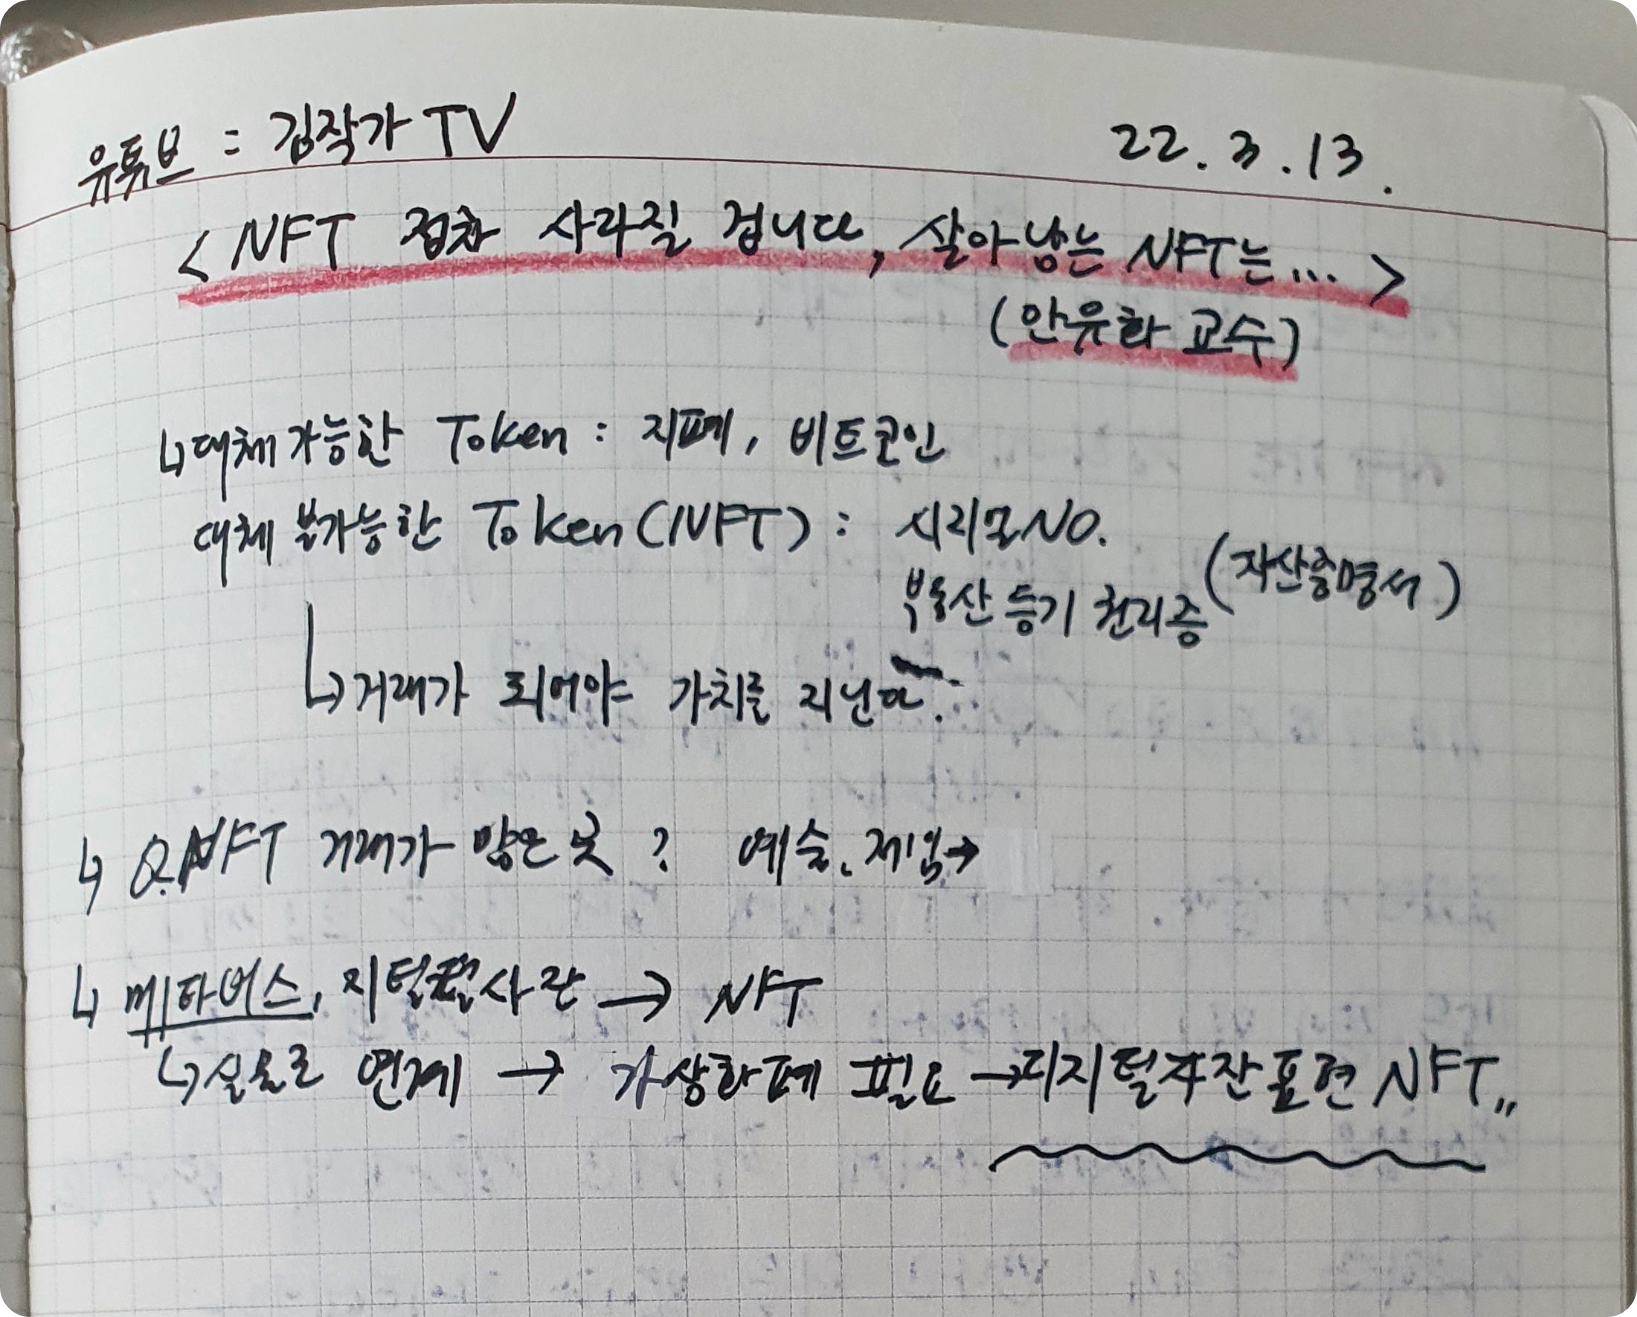 유튜브 : 김작가 TV 22. 3. 13.
< NFT 점차 사라질 겁니다, 살아남는 NFT는... >
(안유화 교수)
↳ 대체 가능한 Token : 지폐, 비트코인
대체 불가능한 Token (NFT) : 시리얼 NO.
부동산 등기 권리증 (자산증명서)
↳ 거래가 되어야 가치를 지닌다.
↳ Q. NFT 거래가 많은 곳 ? 예술, 게임 →
↳ 메타버스, 지털 사관 → NFT
↳ 연계 → 가상화폐 필요 → 디지털자산 표현 NFT,,